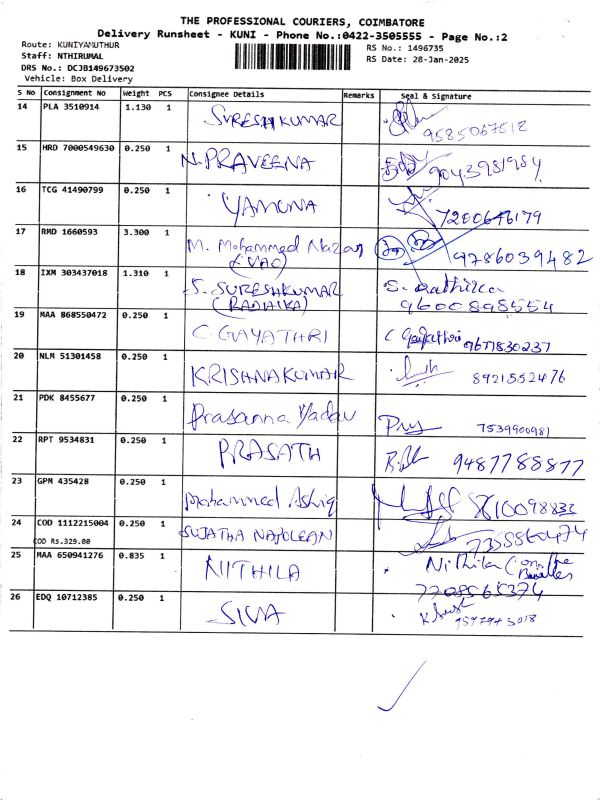 THE PROFESSIONAL COURIERS, COIMBATORE
Delivery Runsheet - KUNI - Phone No.:0422-3505555 - Page No.:2
Route: KUNIYAMUTHUR
RS No.: 1496735
Staff: NTHIRUMAL
RS Date: 28-Jan-2025
DRS No.: DCJB149673502
Vehicle: Box Delivery
S No Consignment No Weight PCS Consignee Details Remarks Seal & Signature
14 PLA 3510914 1.130 1 SURESHKUMAR
9585067518
15 HRD 7000549630 0.250 1 N.PRAVEENA 9043981984
16 TCG 41490799 0.250 1 YAMUNA 7200646179
17 RMD 1660593 3.300 1 M. Mohammed Nazar 9786039482
(VAC)
18 IXM 303437018 1.310 1 S. SURESHKUMAR S. Rathika
(RADHIKA) 9600898554
19 MAA 868550472 0.250 1 C. GAYATHRI C Gayathri 9677830237
20 NLM 51301458 0.250 1 KRISHNAKUMAR 8921552476
21 PDK 8455677 0.250 1 Prasanna Yadav 7539900981
22 RPT 9534831 0.250 1 PRASATH 9487788877
23 GPM 435428 0.250 1 Mohammed Ashiq 8610098833
24 COD 1112215004 0.250 1 SUJATHA NAPOLEAN 7358860474
COD Rs.329.00
25 MAA 650941276 0.835 1 NITHILA Nithila
7708565374
26 EDQ 10712385 0.250 1 SIVA
9597943018